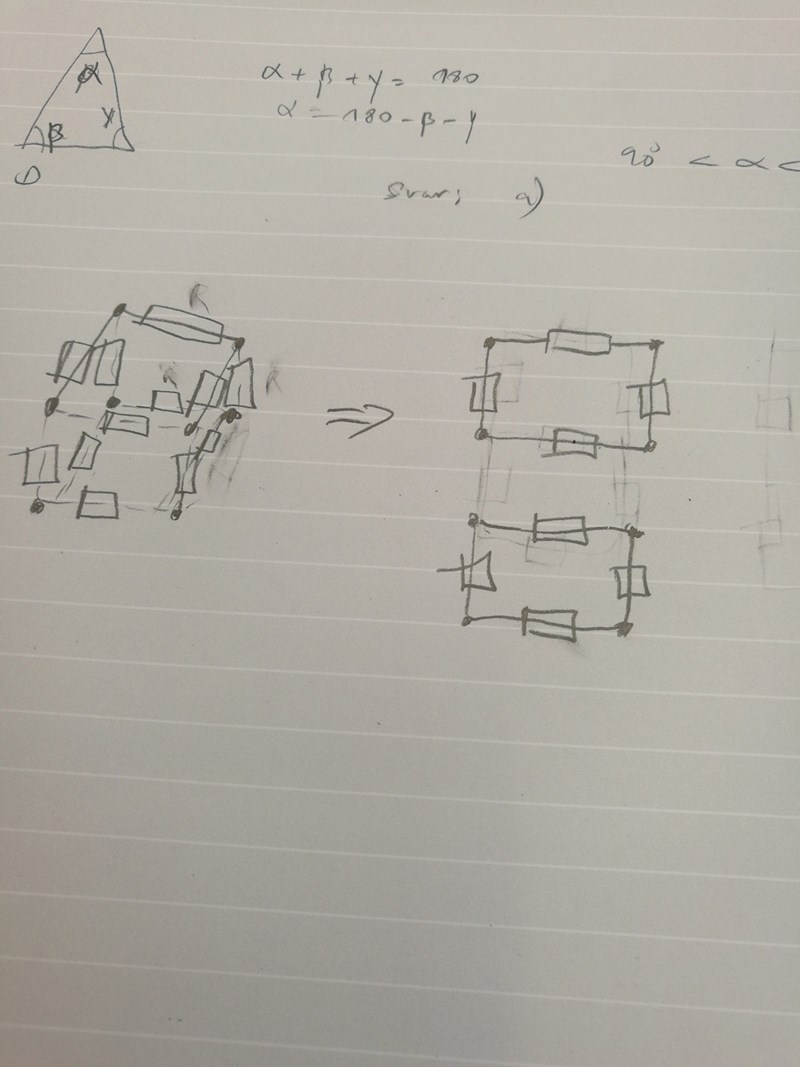 α
β γ
D
α + β + γ = 180
α = 180 - β - γ
90° < α <
Svar: a)
R
R R